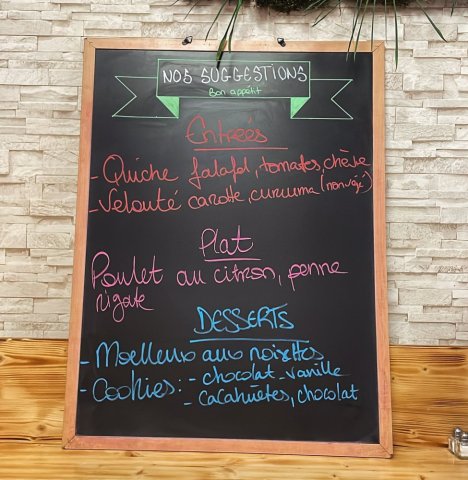 NOS SUGGESTIONS
Bon appétit
Entrées
- Quiche falafel, tomates, chèvre
- Velouté carotte, curcuma (non végé)
Plat
Poulet au citron, penne
rigate
DESSERTS
- Moelleux aux noisettes
- Cookies: - chocolat-vanille
- cacahuètes, chocolat